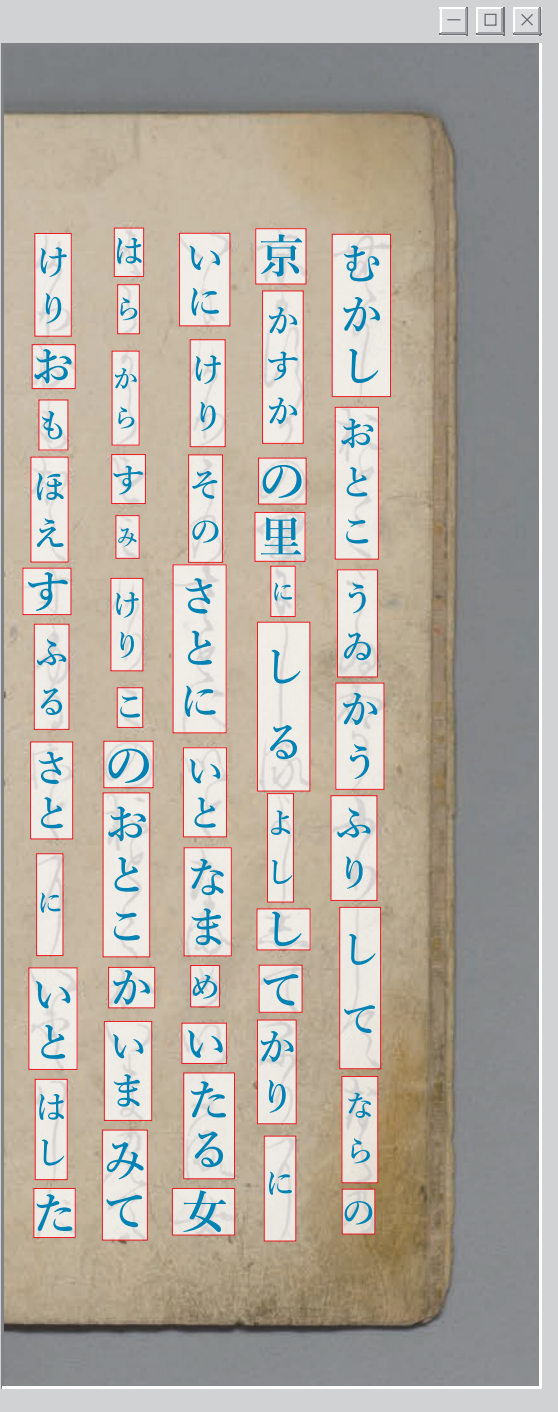 むかしおとこうゐかうふりしてならの
京かすかの里にしるよししてかりに
いにけりそのさとにいとなまめいたる女
はらからすみけりこのおとこかいまみて
けりおもほえすふるさとにいとはした